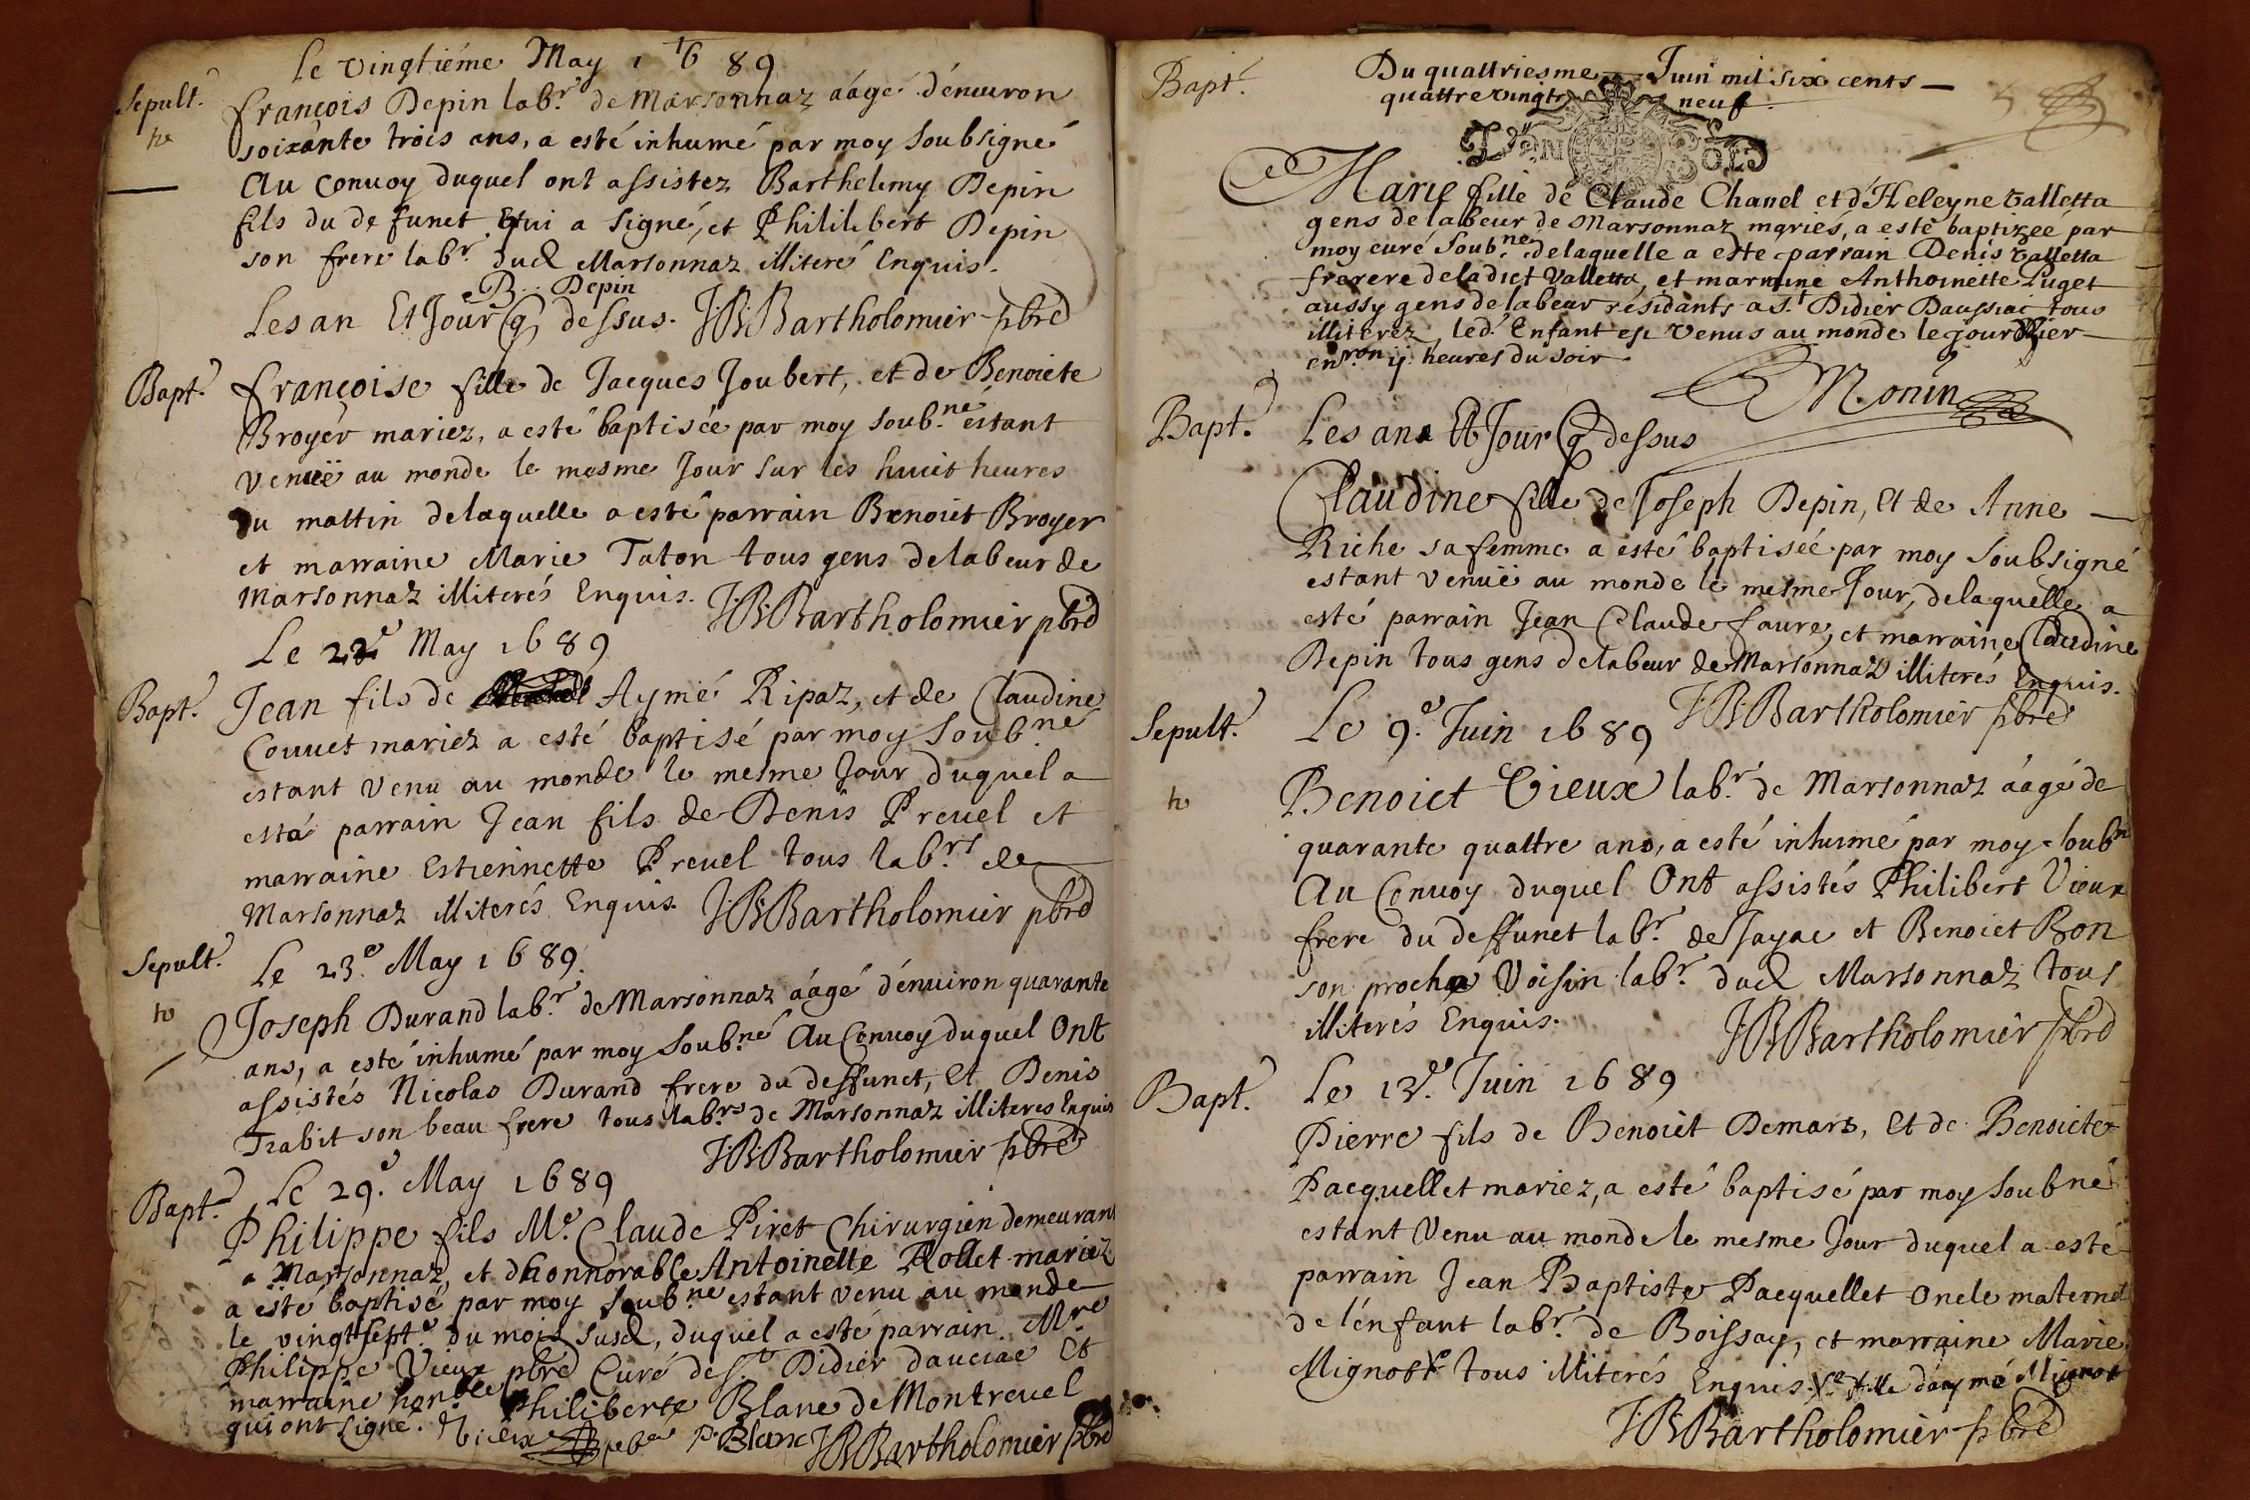 Le vingtiéme May 1689
Sepult.re
françois Depin lab.r de Marsonnaz áágé d'énuiron
soixánte trois ans, a esté inhumé par moy Soubsigné
Au Conuoy duquel ont assistez Barthelemy Depin
fils du defunct Qui a signé, et Philibert Depin
son frere lab.r dud Marsonnaz illiteré Enquis.
B. Depin
Les an Et Jour q dessus. J:B:Bartholomier pbre
Bapt.e
françoise fille de Jacques Joubert, et de Benoicte
Broyér mariez, a esté baptisée par moy soub.né éstant
venuë au monde le mesme Jour sur les huict heures
du mattin delaquelle a esté parrain Benoict Broyer
et marraine Marie Taton tous gens delabeur de
Marsonnaz illiterés Enquis. J:B:Bartholomier pbre
Le 22e May 1689
Bapt.e
Jean fils de Aymé Ripaz, et de Claudine
Couuet mariez a esté baptisé par moy Soub.né
estant Venu au monde le mesme Jour duquel a
esté parrain Jean fils de Denis Preuel et
marraine Estiennette Preuel tous lab.rs de
Marsonnaz illiterés Enquis. J:B:Bartholomier pbre
Sepult.re
Le 23.e May 1689.
Joseph Durand lab.r de Marsonnaz áágé d'énuiron quarante
ans, a esté inhumé par moy Soub.né Au Conuoy duquel Ont
assistés Nicolas Durand frere du deffunct, Et Denis
Trabit son beau frere tous lab.rs de Marsonnaz illiteres Enquis
J:B:Bartholomier pbre
Bapt.e
Le 29.e May 1689
Philippe fils M.e Claude Piret Chirurgien demeurant
a Marsonnaz, et dhonnorable Antoinette Rollet mariez
a esté baptisé par moy Soub.né estant venu au monde
le vingtsept.e du mois susd, duquel a esté parrain M.re
Philippe Vieux pbre Curé de S.t Didier dauciac Et
marraine hon.ble Philiberte Blanc de Montreuel
qui ont signé. Vieux P. Blanc J:B:Bartholomier pbre
Bapt.e
Du quattriesme Juin mil six cents
quattre vingts neuf.
Marie fille dé Claude Chanel et d'Heleyne Valletta
gens de labeur de Marsonnaz mariés, a esté baptizée par
moy curé Soub.né delaquelle a este parrain Denis Valletta
frerere deladict Valletta, et marraine Anthoinette Puget
aussy gens de labeur résidants a S.t Didier Daussiac tous
illiterez, led. Enfant est venus au monde le jour d'hier
en.ron ij heures du soir
Monin
Bapt.e
Les ans Et Jour q dessus
Claudine fille de Joseph Depin, Et de Anne
Riche sa femme a esté baptiséé par moy Soubsigné
estant venuë au monde le mesme Jour, delaquelle a
esté parrain Jean Claude faure, et marraine Claudine
Depin tous gens delabeur de Marsonnaz illiterés Enquis.
J:B:Bartholomier pbre
Sepult.re
Le 9.e Juin 1689
Benoict Vieux lab.r de Marsonnaz áágé de
quarante quattre ans, a esté inhumé par moy Soub.né
Au Conuoy duquel Ont assistés Philibert Vieux
frere du deffunct lab.r de Jayac et Benoict Bon
son proche Voisin lab.r dud Marsonnaz tous
illiterés Enquis. J:B:Bartholomier pbre
Bapt.e
Le 13.e Juin 1689
Pierre fils de Benoict Demars, Et de Benoicte
Pacquellet mariez, a esté baptisé par moy Soub né
estant Venu au monde le mesme Jour duquel a esté
parrain Jean Baptiste Pacquellet oncle maternel
de l'énfant lab.r de Boissay, et marraine Marie
Mignot tous illiterés Enquis. fille d'aymé Mignot
J:B:Bartholomier pbre